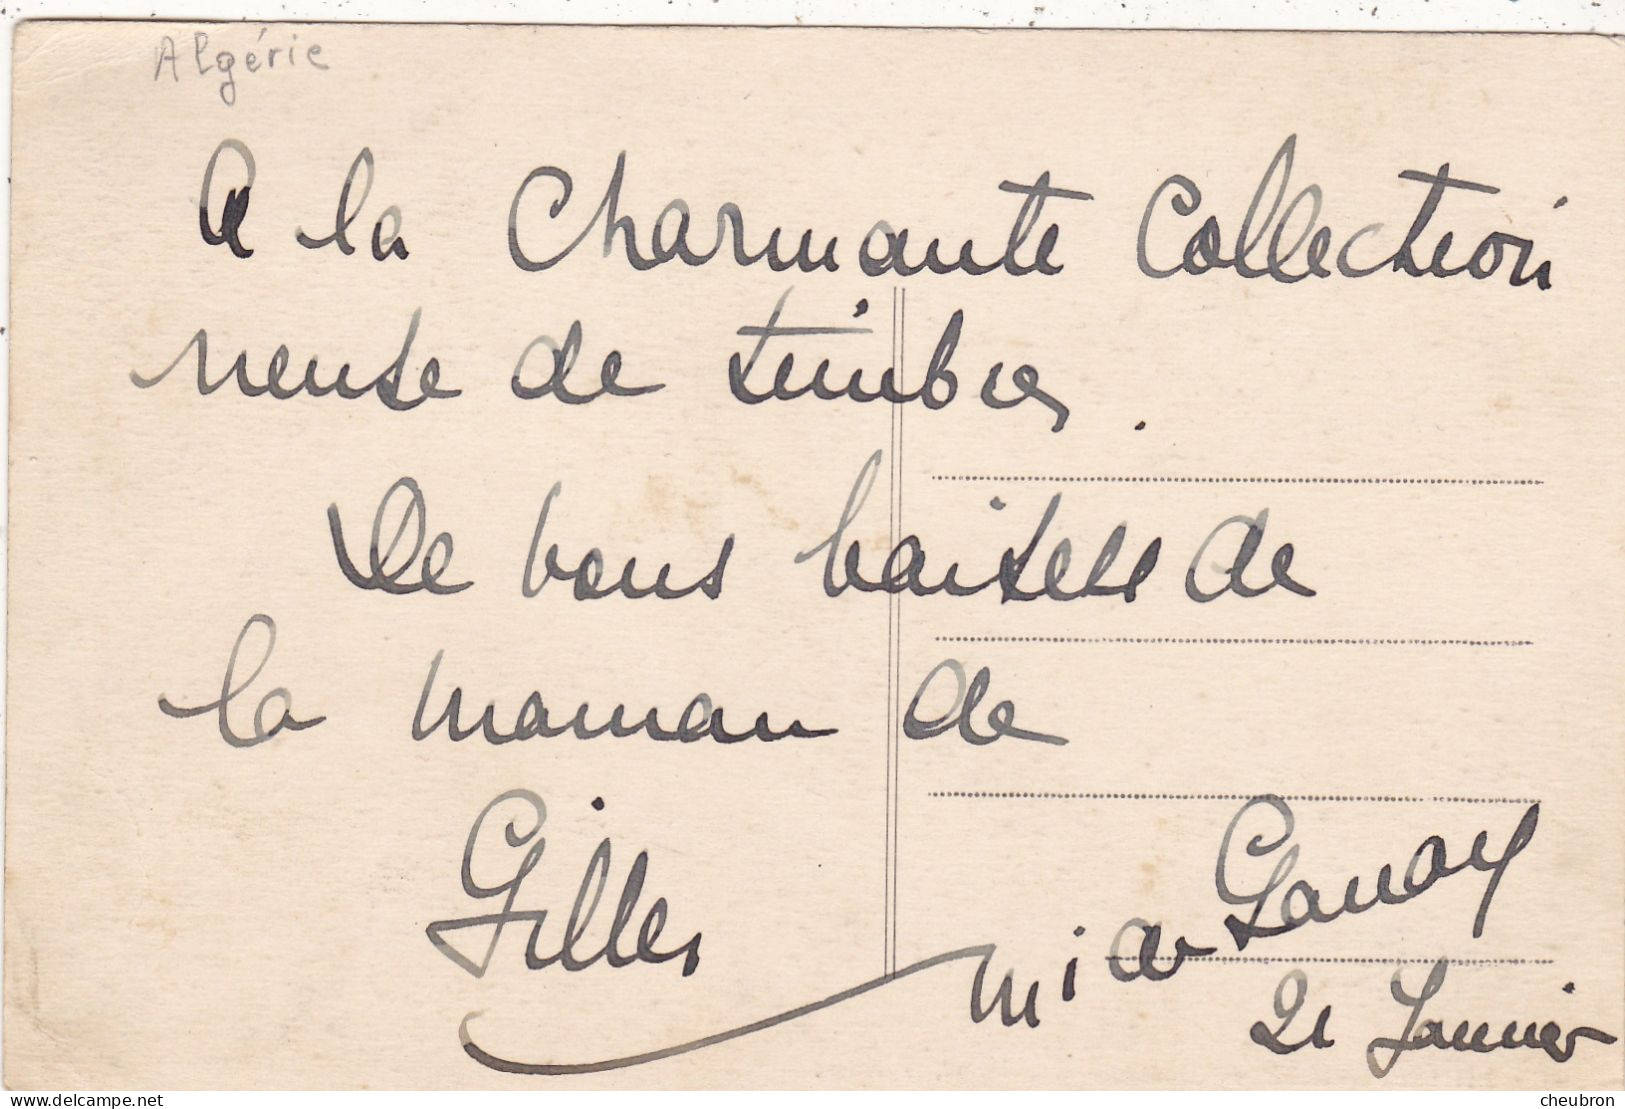 Algérie
A la Charmante Collection
neuse de timbres.
De bons baisers de
la maman de
Gilles
de
21 Janvier
delcampe.net
cheubron